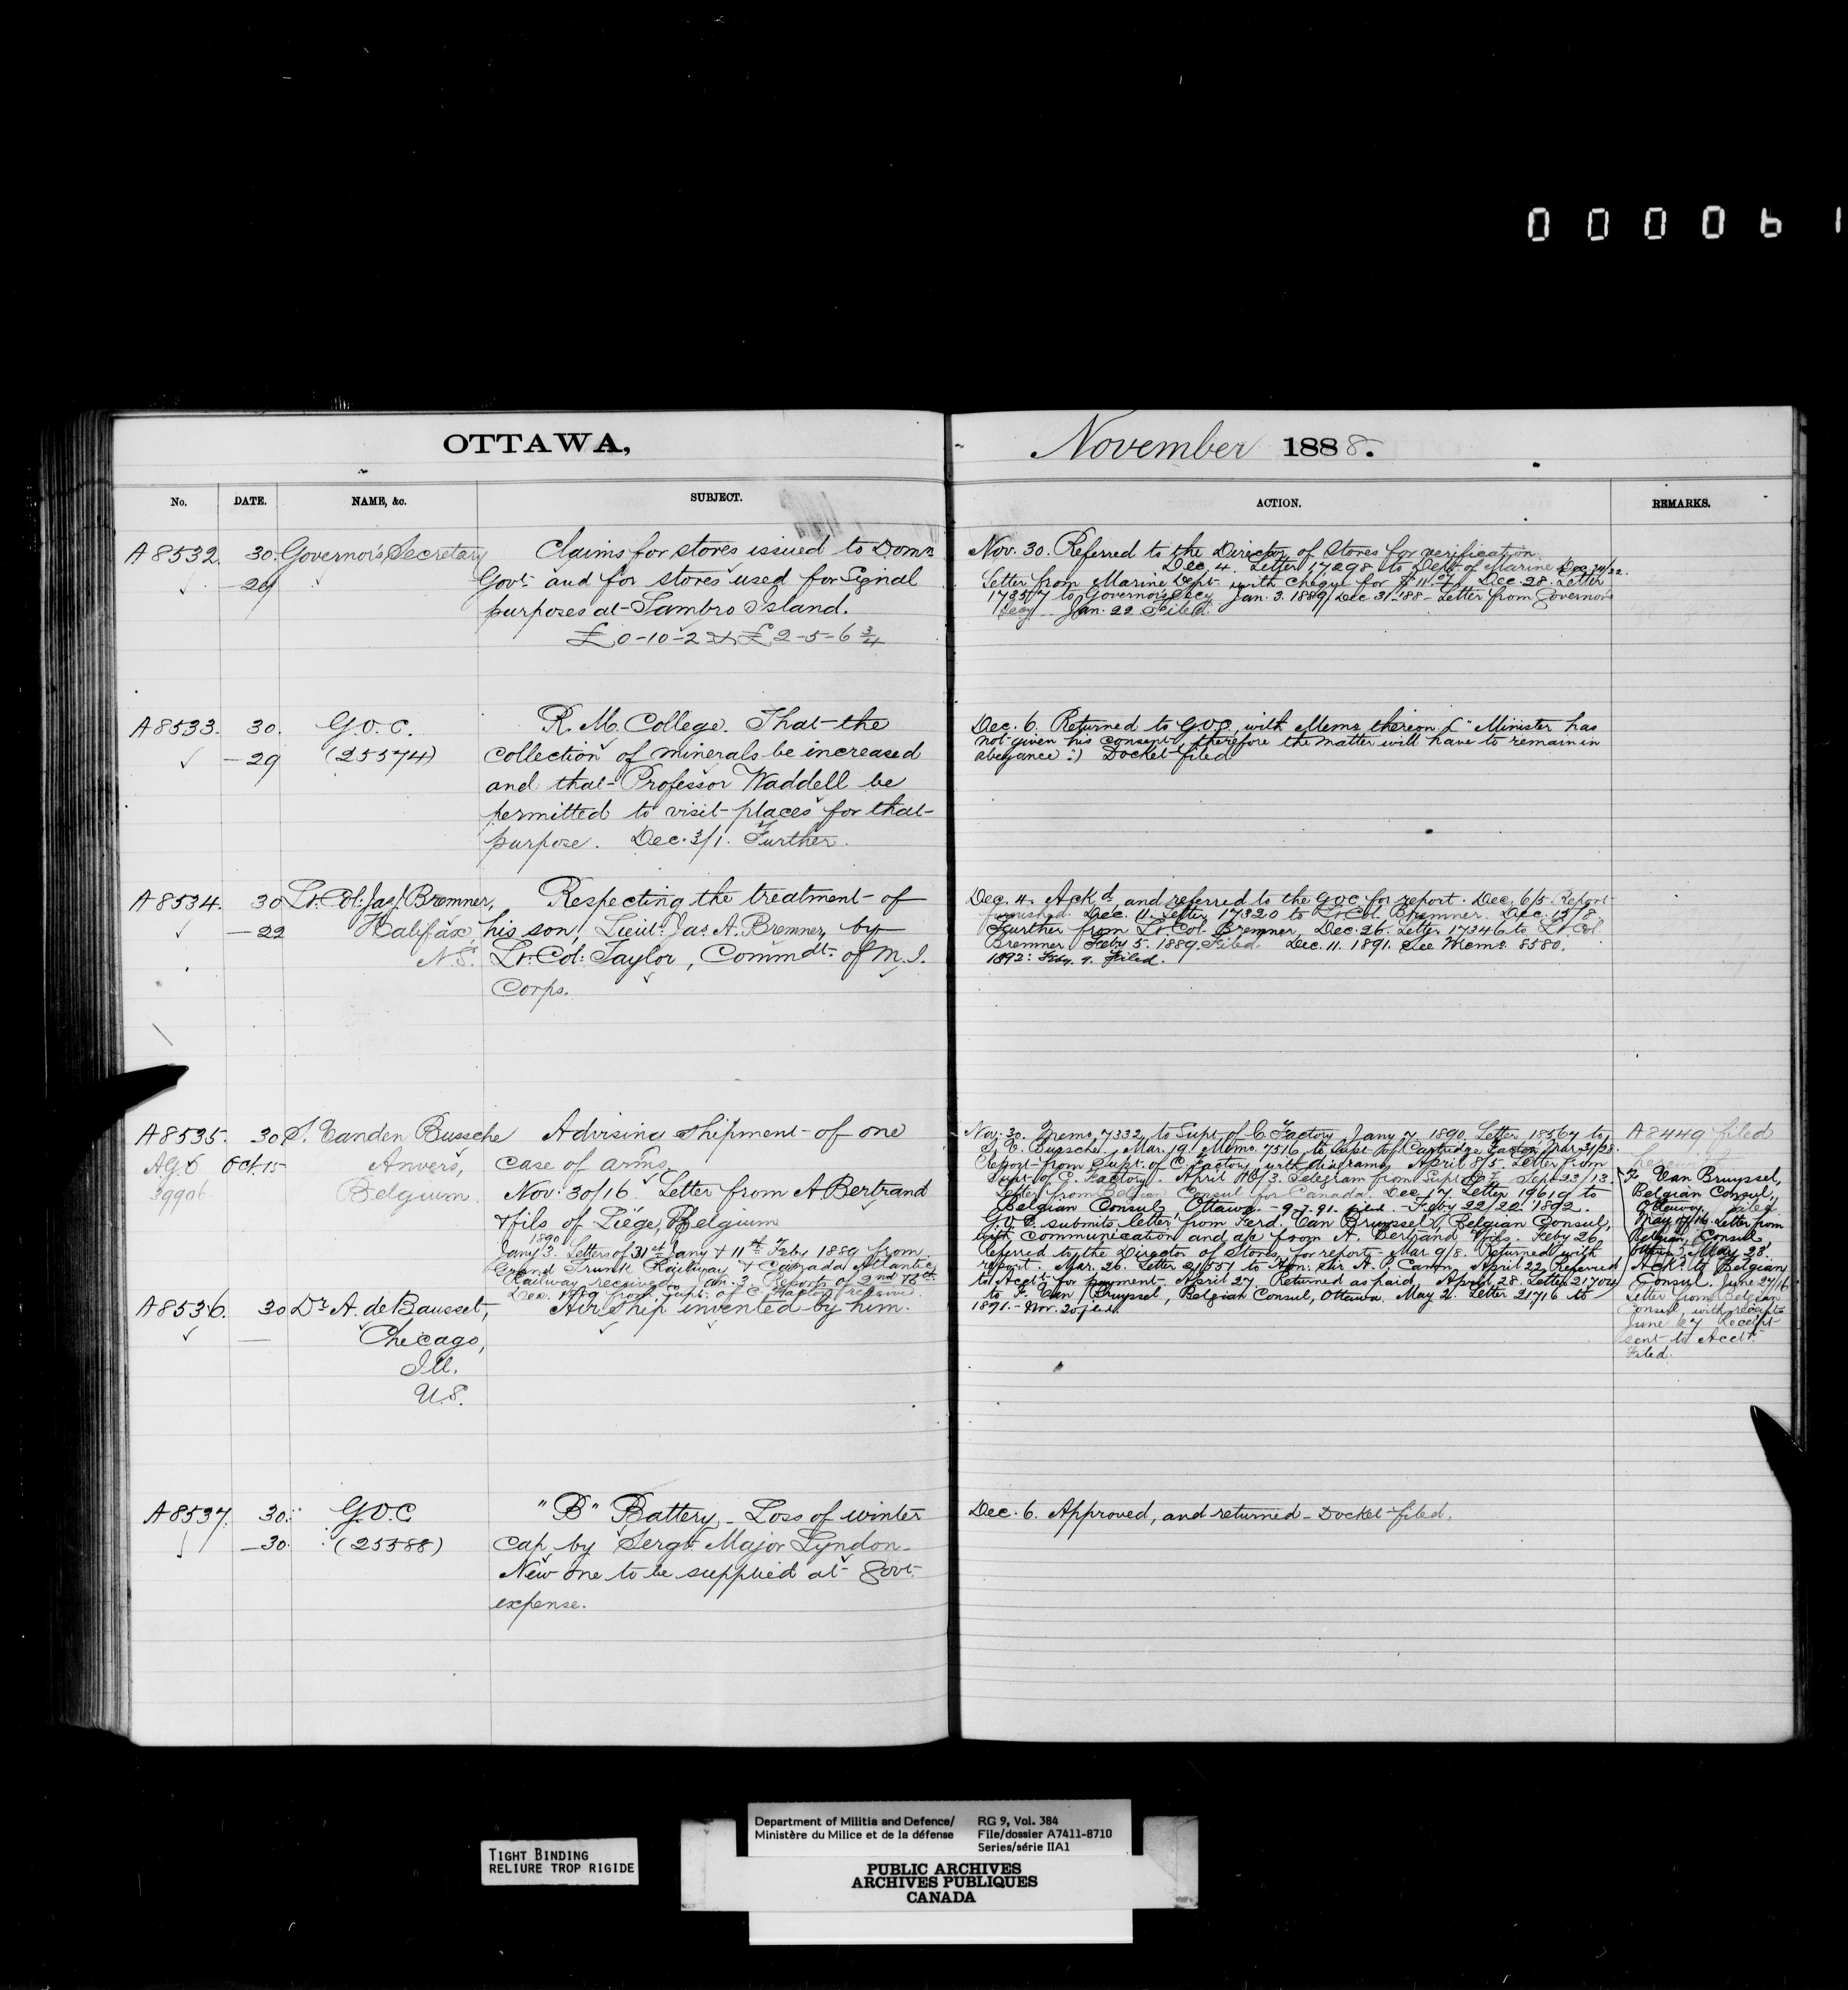 000061
OTTAWA,
November 1888.
No. DATE. NAME, &c. SUBJECT.
ACTION. REMARKS.
A8532. 30. Governor's Secretary Claims for stores issued to Domn
✓ —29 Govt: and for stores used for Signal
purposes at Sambro Island.
£0-10-2 & £2-5-6 3/4
Nov. 30. Referred to the Director of Stores for verification.
Dec. 4. Letter 17298 to Dept of Marine Dec. 24/22.
Letter from Marine Dept. with cheque for $11. Dec. 28. Letter
17357 to Governor's Secy Jan. 3. 1889/Dec 31-'88 - Letter from Governor's
Secy. Jan. 22 Filed.
A8533. 30. G.O.C. R. M. College. That the
✓ —29 (25574) collection of minerals be increased
and that Professor Waddell be
permitted to visit places for that
purpose. Dec. 3/1. Further.
Dec. 6. Returned to G.O.C. with Memo thereon (" Minister has
not given his consent, therefore the matter will have to remain in
abeyance".) Docket filed
A8534. 30 Lt. Col: Jas. Bremner, Respecting the treatment of
✓ —22 Halifax, his son, Lieut: Jas. A. Bremner, by
N.S. Lt. Col: Taylor, Commdt: of M.I.
Corps.
Dec. 4. Ackd. and referred to the G.O.C. for report. Dec. 6/5. Report
furnished. Dec. 11. Letter 17320 to Lt. Col. Bremner. Dec. 13/8.
Further from Lt. Col. Bremner, Dec. 26. Letter 17346 to Lt. Col.
Bremner Feby 5. 1889. Filed. Dec. 11. 1891. See Memo. 8580.
1892: Feby. 9. Filed.
A8535. 30 Vanden Bussche Advising shipment of one
AG. Oct. 15 Anvers, case of arms
39906 Belgium. Nov. 30/16. Letter from A Bertrand
& fils of Liége, Belgium
1890
Jany 3. Letters of 31st Jany & 11th Feby 1889 from
Grand Trunk Railway & Canada Atlantic
Railway received. Jan. 3. Reports of 2nd
Dec. from Supt. of C. Factory receive
Nov. 30. Memo 7332 to Supt of C. Factory. Jany 7. 1890. Letter 18567 to
Bussche. Mar. 19. Memo. 7516 to Supt of Cartridge Factory Mar. 21/28.
Report from Supt. of C. Factory, with diagrams April 8/5. Letter from
Supt of C. Factory. April 10/3. Telegram from Supt Sept. 23/13
Letter from Belgian Consul for Canada. Dec. 17. Letter 19619 to
Belgian Consul, Ottawa. - 9.7.91. filed. - Feby 22/22. 1892.
G.O.C. submits letter from Ferd. Van Bruyssel, Belgian Consul,
with communication and a/c from A. Bertrand & fils. Feby 26.
Referred to the Director of Stores, for report - Mar 9/8. Returned with
report. Mar. 26. Letter 21557 to Hon. Sir A. P. Caron. April 22. Referred
to Acct. for payment. April 27. Returned as paid. April 28. Letter 21704
to F. Van Bruyssel, Belgian Consul, Ottawa. May 2. Letter 21716 to
1891. - Nov. 20 filed.
A8449 filed
F. Van Bruyssel,
Belgian Consul,
Ottawa. filed.
May 17/16. Letter from
Belgian Consul
May 28.
Ackd. to Belgian
Consul. June 27/16
Letter from Belgian
Consul, with receipt
June 27 Receipt
sent to Acct.
Filed.
A8536. 30 Dr. A. de Bausset, Air Ship invented by him.
✓ — Chicago,
Ill.
U.S.
A8537. 30. G.O.C "B" Battery - Loss of winter
✓ —30. (25588) cap by Sergt Major Lyndon.
New one to be supplied at Govt.
expense.
Dec. 6. Approved, and returned - Docket filed.
TIGHT BINDING
RELIURE TROP RIGIDE
Department of Militia and Defence/ RG 9, Vol. 384
Ministère du Milice et de la défense File/dossier A7411-8710
Series/série IIA1
PUBLIC ARCHIVES
ARCHIVES PUBLIQUES
CANADA